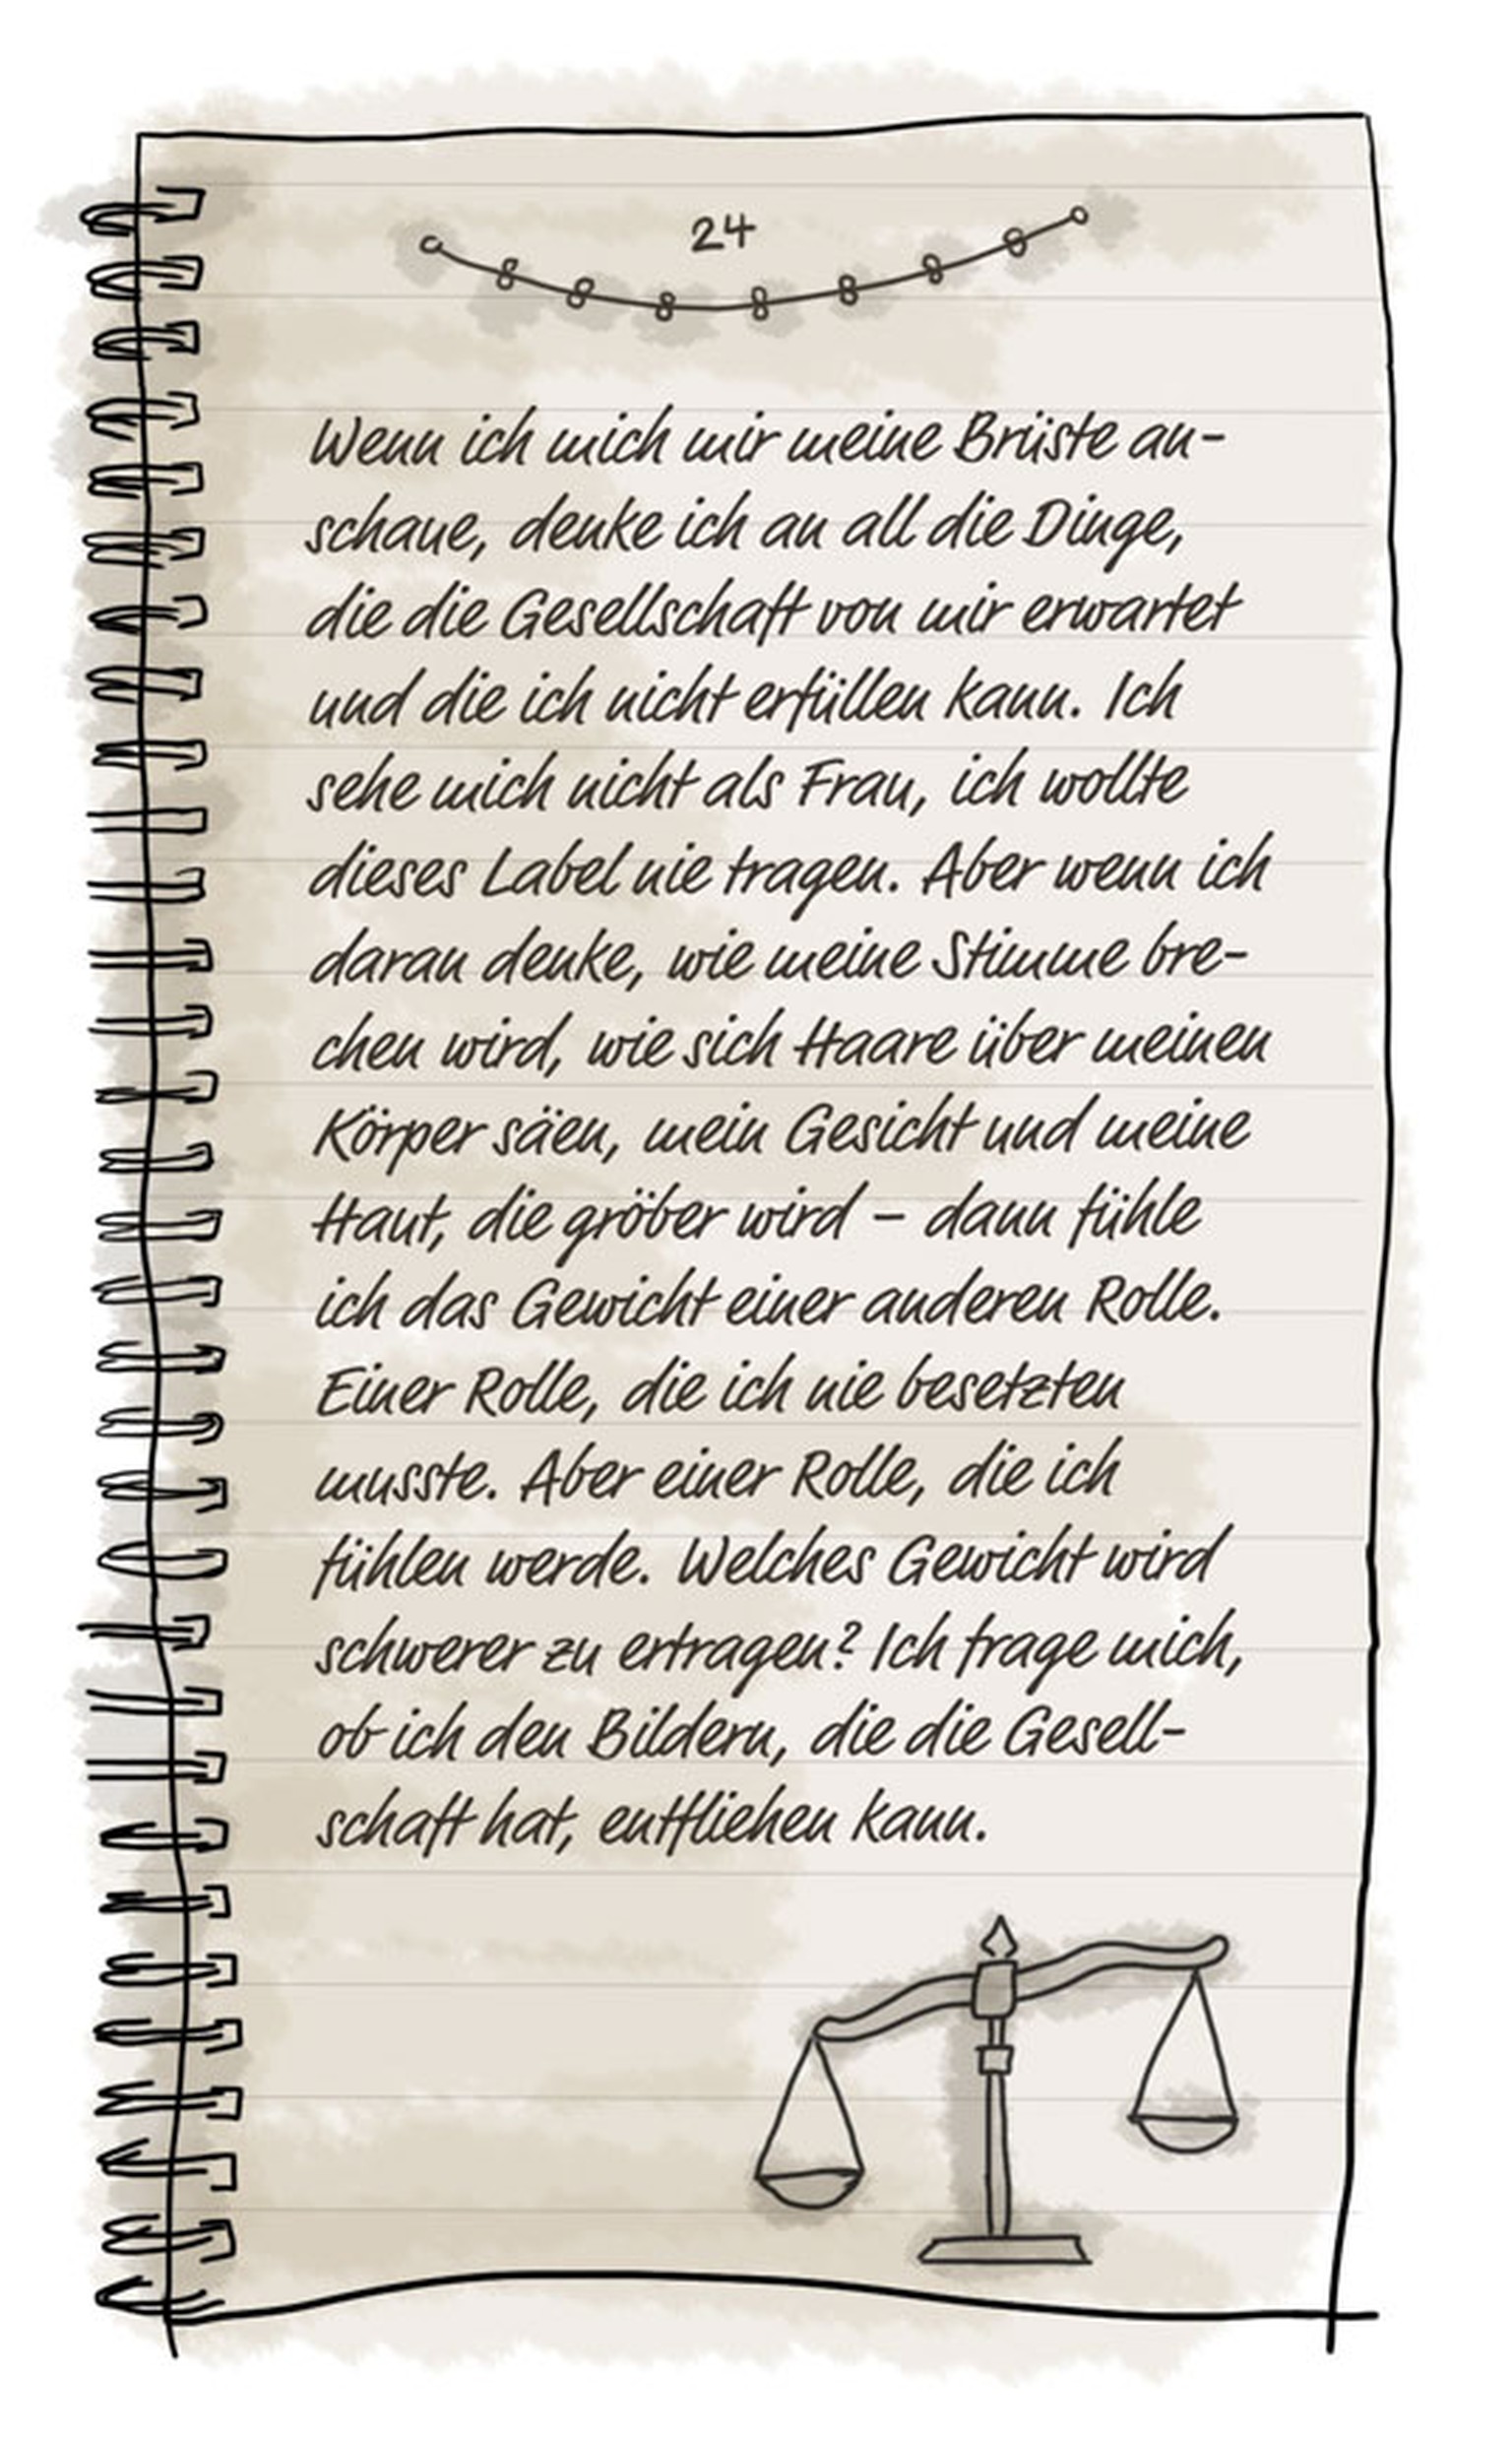 24
Wenn ich mich mir meine Brüste an-
schaue, denke ich an all die Dinge,
die die Gesellschaft von mir erwartet
und die ich nicht erfüllen kann. Ich
sehe mich nicht als Frau, ich wollte
dieses Label nie tragen. Aber wenn ich
daran denke, wie meine Stimme bre-
chen wird, wie sich Haare über meinen
Körper säen, mein Gesicht und meine
Haut, die gröber wird – dann fühle
ich das Gewicht einer anderen Rolle.
Einer Rolle, die ich nie besetzten
musste. Aber einer Rolle, die ich
fühlen werde. Welches Gewicht wird
schwerer zu ertragen? Ich frage mich,
ob ich den Bildern, die die Gesell-
schaft hat, entfliehen kann.